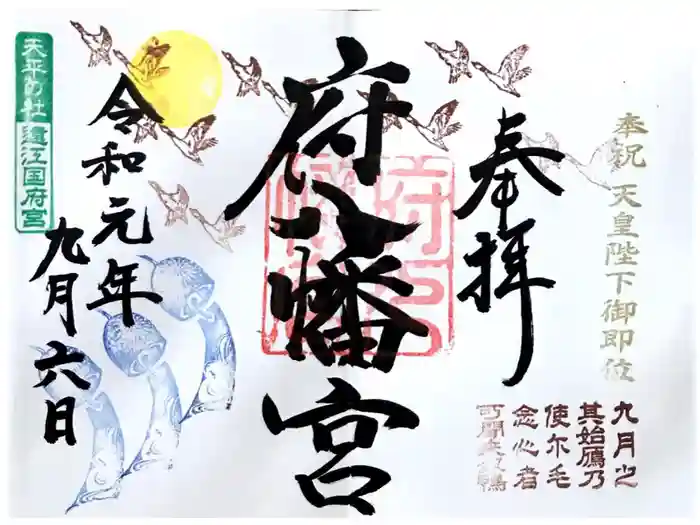 奉祝 天皇陛下御即位
九月之
其始鴈乃
使尓毛
念心者
可聞来奴鴨
奉拝
府八幡宮
令和元年
九月六日
天平の社 遠江国府宮